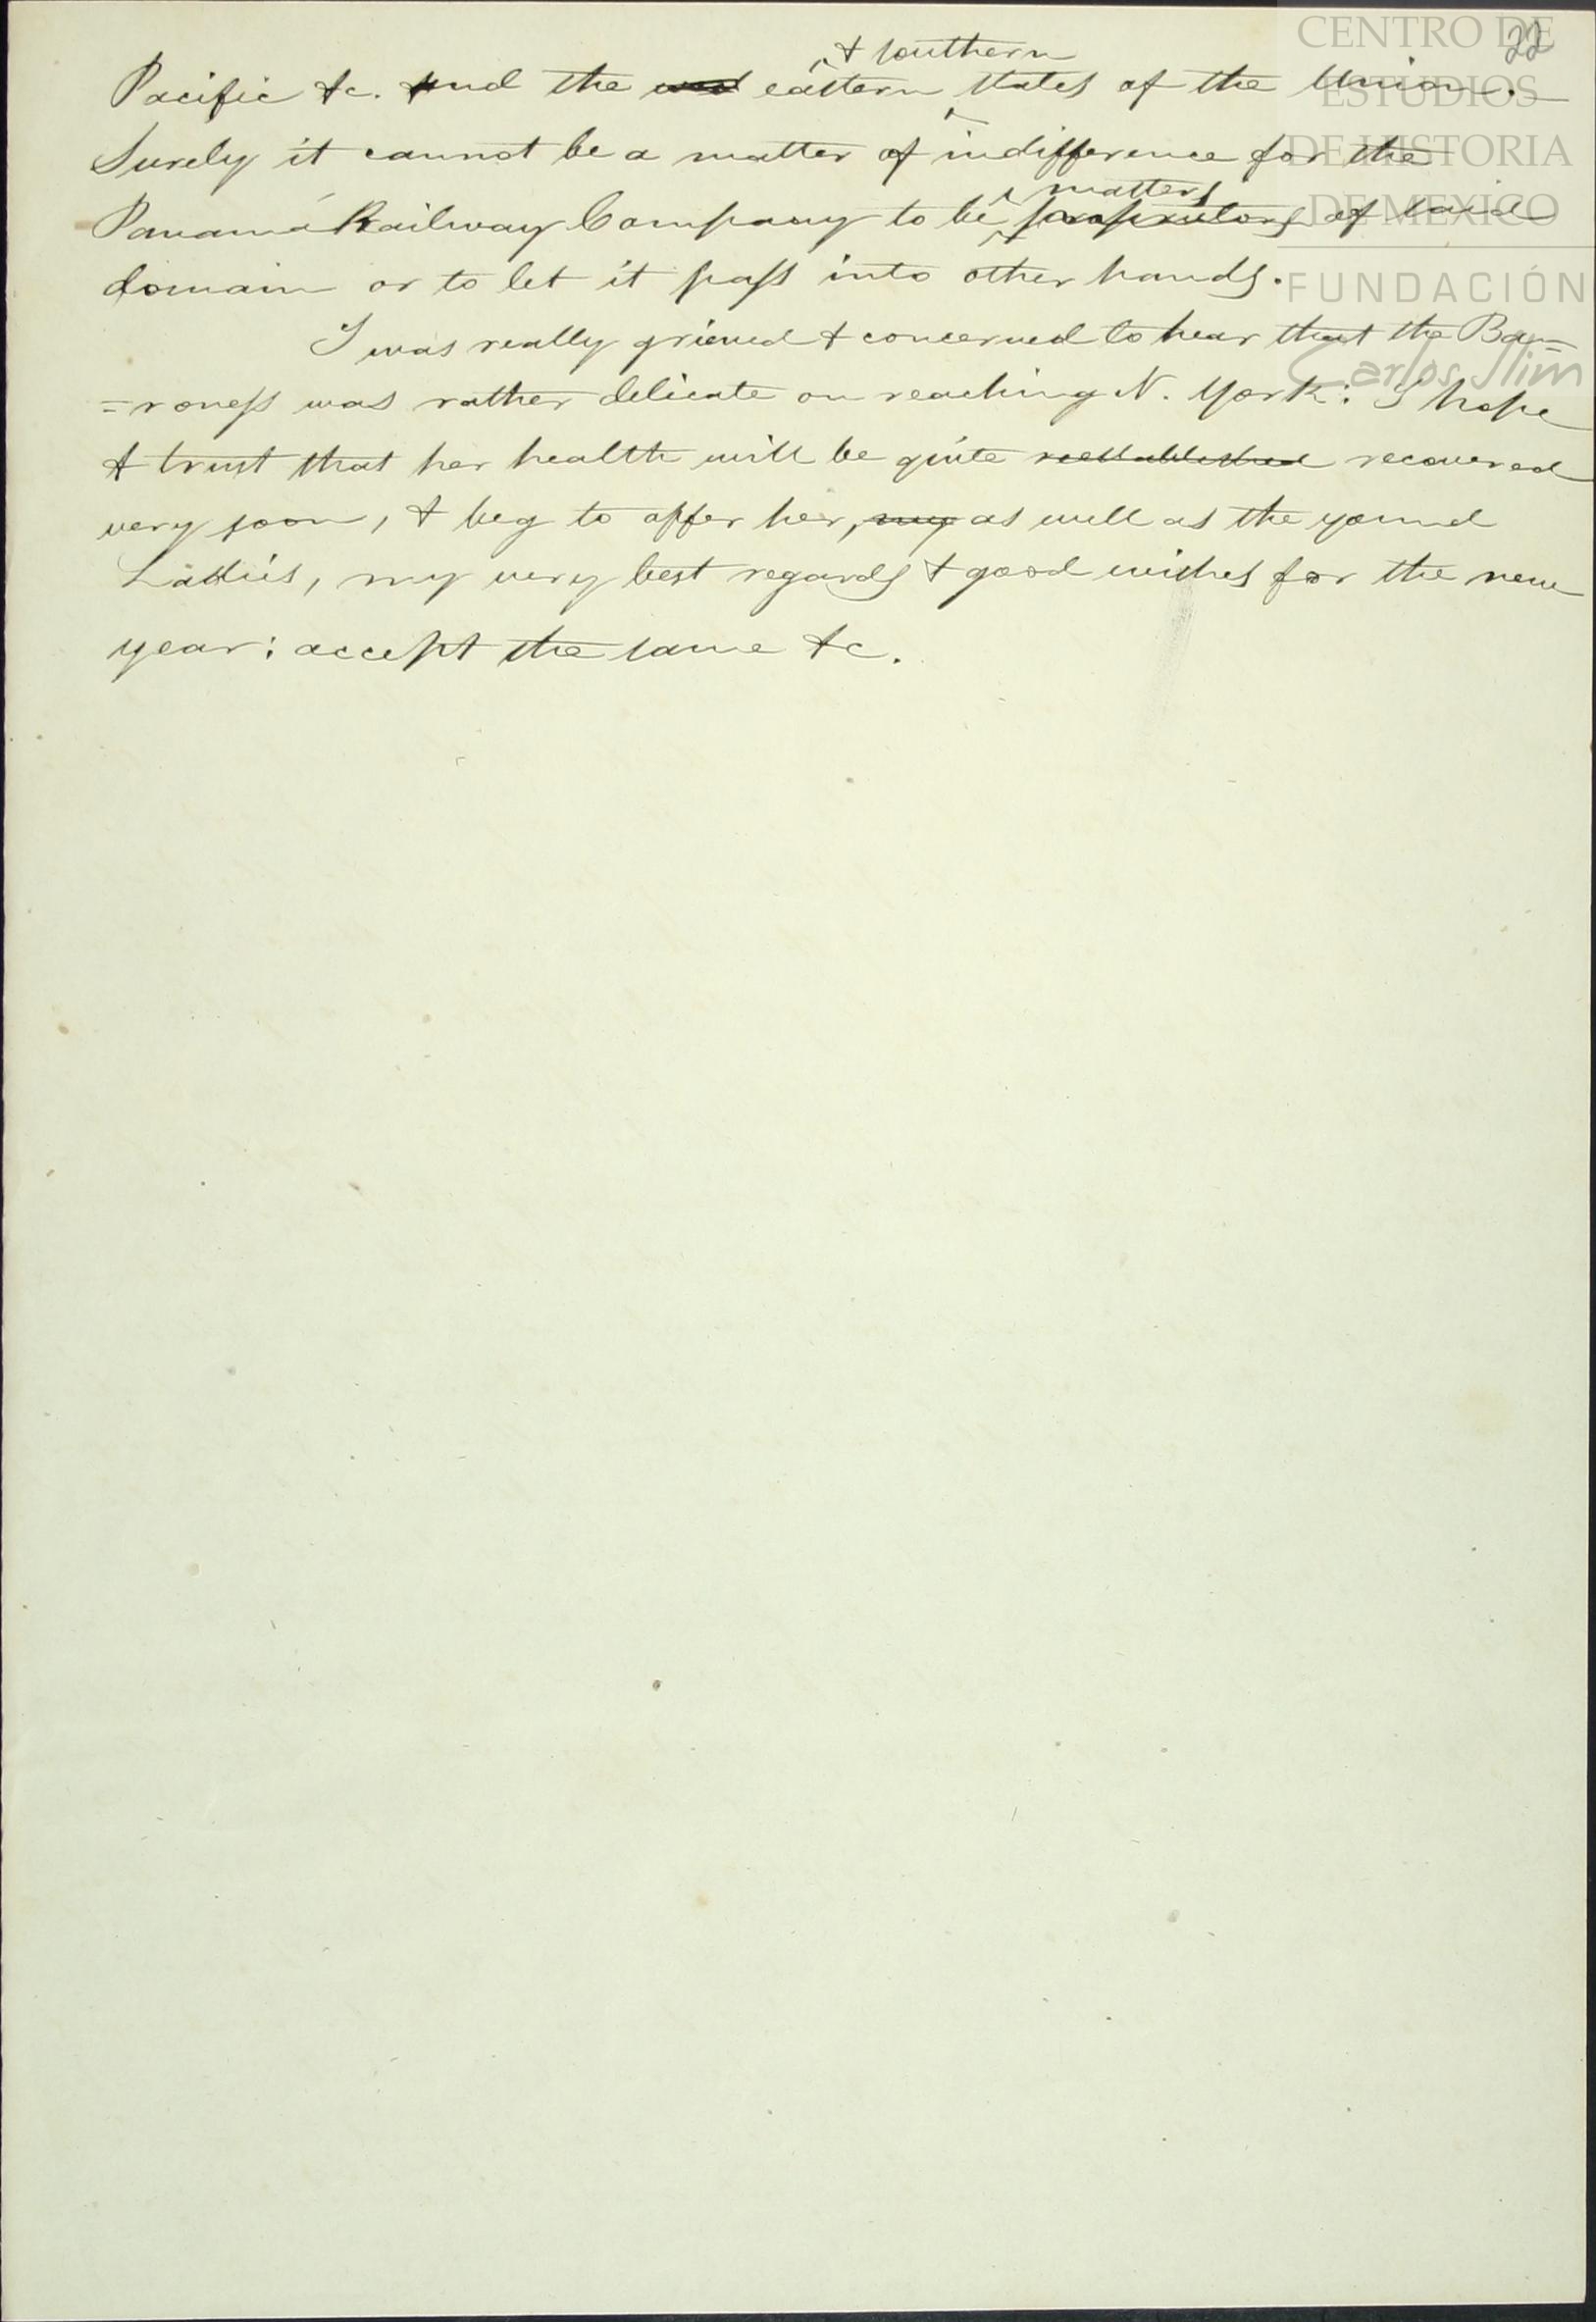 22
CENTRO DE
ESTUDIOS
DE HISTORIA
DE MEXICO
FUNDACIÓN
Carlos Slim
& southern
Pacific &c. and the eastern states of the Union.
Surely it cannot be a matter of indifference for the
matters
Panamá Railway Company to be proprietors of said
domain or to let it pass into other hands.
I was really grieved & concerned to hear that the Ba=
=roness was rather delicate on reaching N. York: I hope
& trust that her health will be quite reestablished recovered
very soon, & beg to offer her, my as well as the yound
Laddies, my very best regards & good wishes for the new
year: accept the same &c.